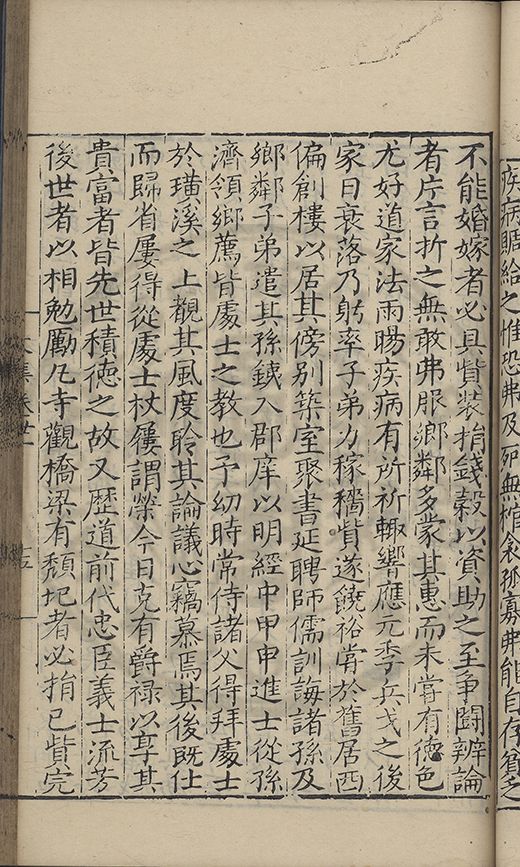 疾病賙給之惟恐弗及死無棺衾孤寡弗能自存貧乏
不能婚嫁者必具貲装捐錢穀以資助之至爭鬪辨論
者片言折之無敢弗服鄉鄰多蒙其惠而未嘗有德色
尤好道家法雨暘疾病有所祈輙響應元季兵戈之後
家日衰落乃躬率子弟力稼穡貲遂饒裕嘗於舊居西
偏創樓以居其傍别築室聚書延聘師儒訓誨諸孫及
鄉鄰子弟遣其孫鉞入郡庠以明經中甲申進士從孫
濟領鄉薦皆處士之教也予幼時常侍諸父得拜處士
於璜溪之上觀其風度聆其論議心竊慕焉其後既仕
而歸省屢得從處士杖屨謂榮今日克有爵禄以享其
貴富者皆先世積德之故又歷道前代忠臣義士流芳
後世者以相勉勵凡寺觀橋梁有頽圮者必捐己貲完
文集卷廿一
十五